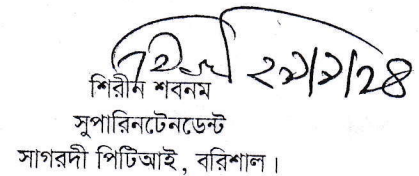 ২৯/১/২৪
শিরীন শবনম
সুপারিনটেনডেন্ট
সাগরদী পিটিআই, বরিশাল।